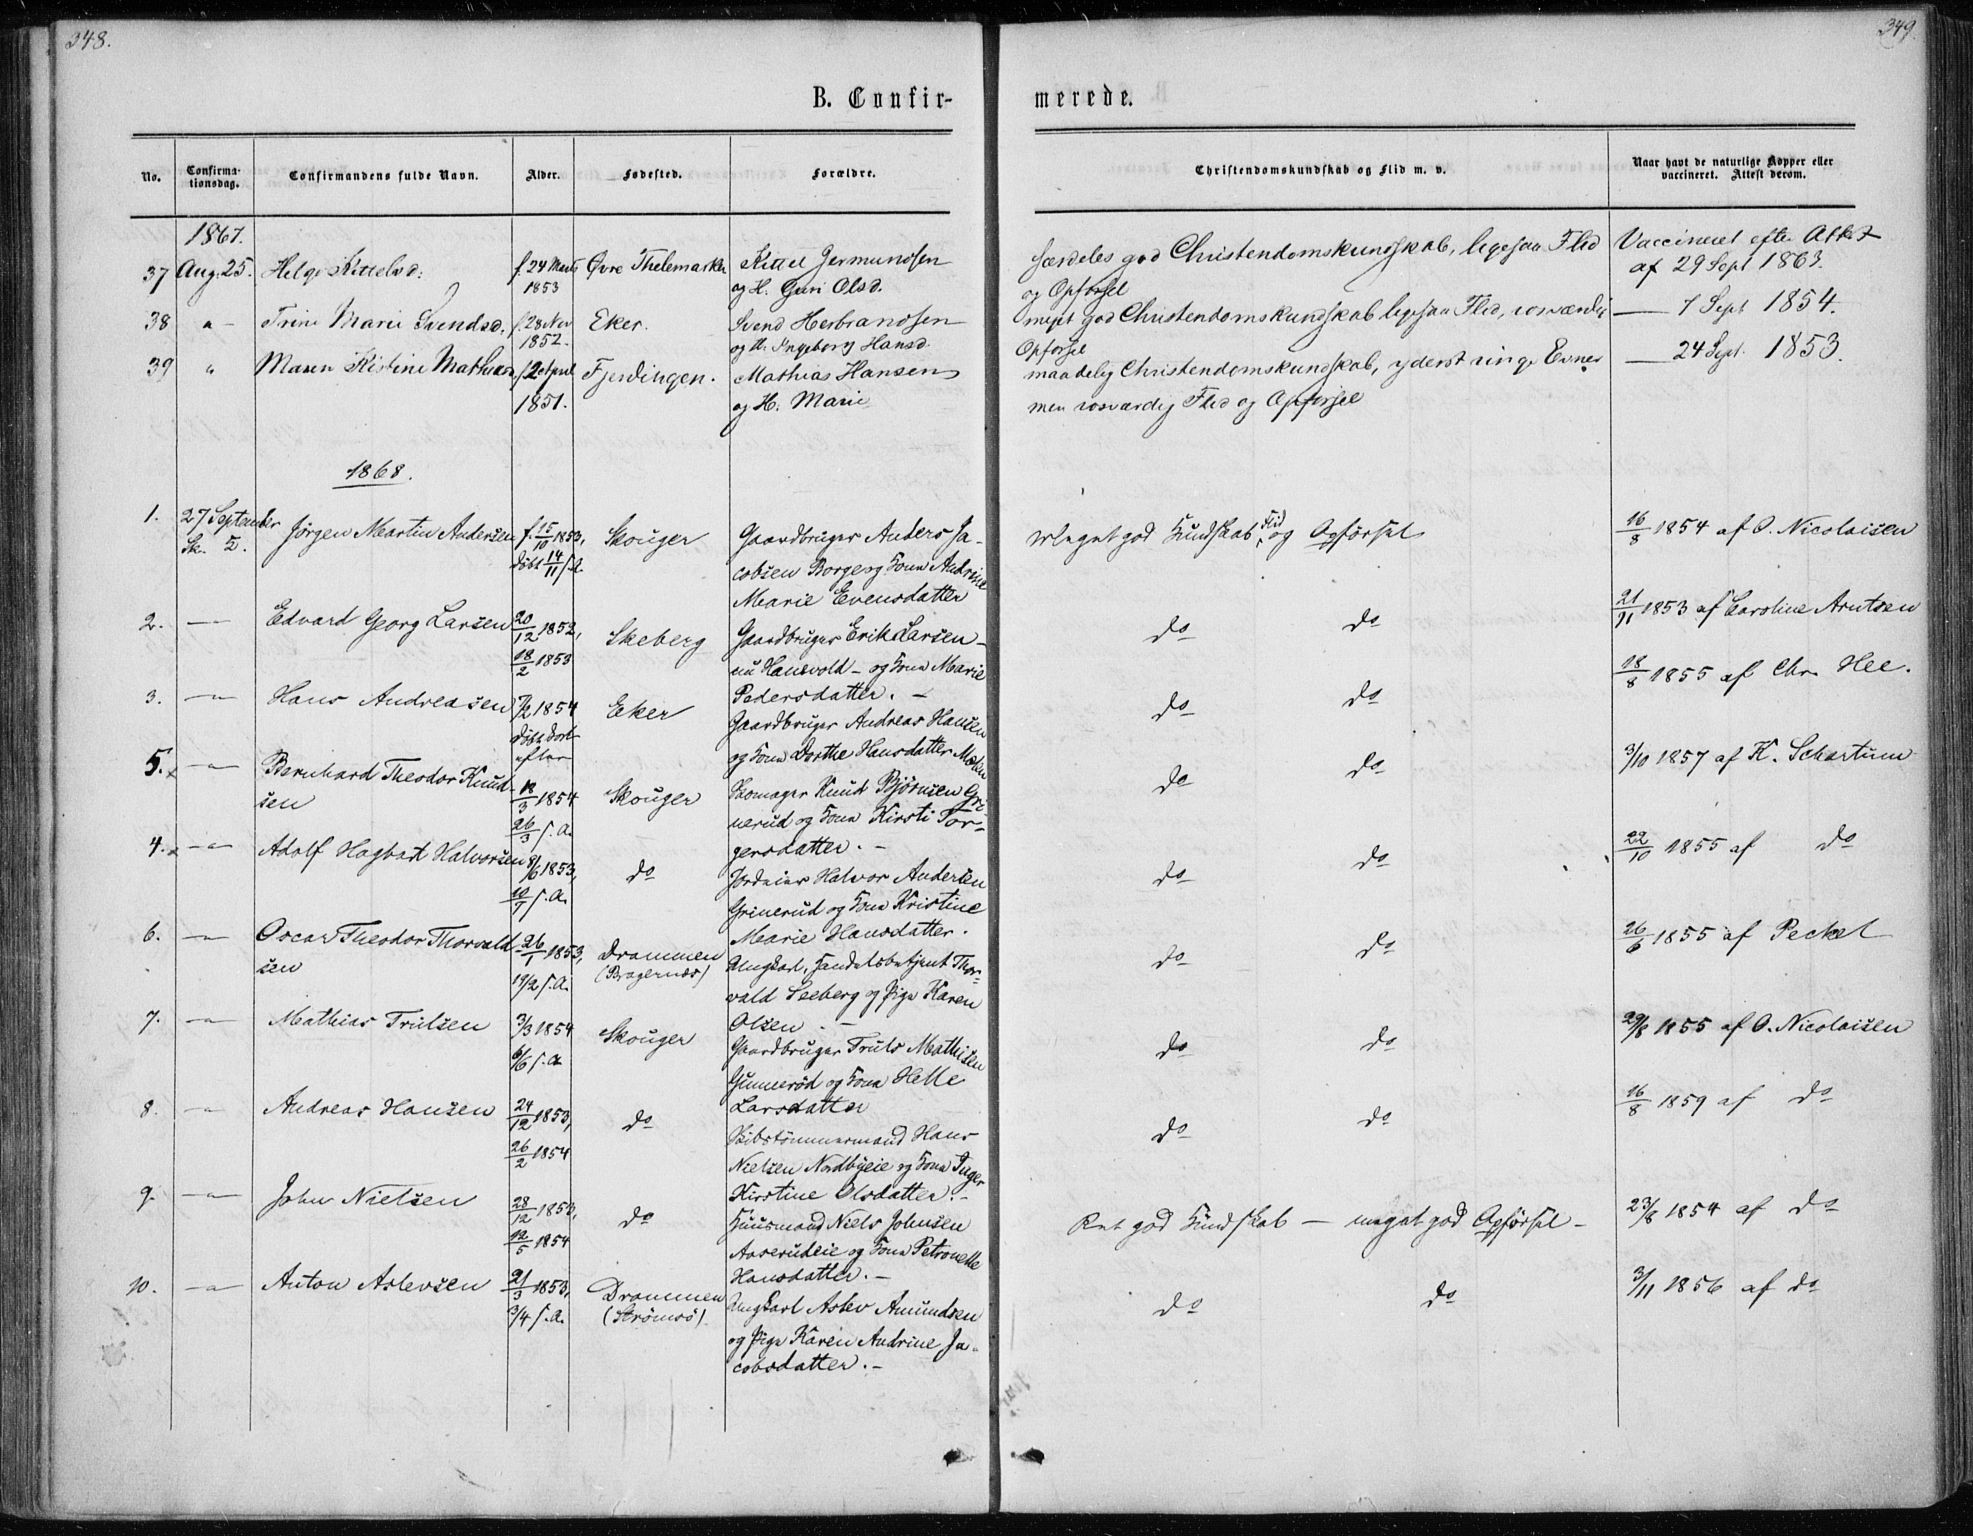 348.
349.
B. Confir-
merede.
No.
Confirma-
tionsdag.
Confirmandens fulde Navn.
Alder.
Fødested.
Forældre.
Christendomskundskab og Flid m. v.
Naar havt de naturlige Kopper eller
vaccineret. Attest derom.
1867.
37 Aug. 25. Helge Kittelsd: f. 24 Marts Øvre Thelemarken Kittel Germundsen særdeles god Christendomskundskab, ligesaa Flid Vaccineret efter Attest
1853 og H. Guri Olsd. og Opførsel af 29 Sept 1863.
38 " Trine Marie Svendsd. f. 28 Nov Eker. Svend Herbrandsen meget god Christendomskundskab ligesaa Flid, rosværdig — 7 Sept 1854.
1852. og H. Ingeborg Hansd. Opførsel
39 " Maren Kistine Mathisd. f. 2 April Fjerdingen. Mathias Hansen maadelig Christendomskundskab, yderst ringe Evner — 24 Sept. 1853.
1851. og H: Marie men rosværdig Flid og Opførsel
1868.
1. 27 September Jørgen Martin Andersen f. 15/10 1853, Skouger Gaardbruger Anders Ja- meget god Kundskab, Flid og Opførsel 16/8 1854 af O. Nicolaisen
Sk. 2. døbt 14/11 s.A. cobsen Borge og Kone Andrine
Marie Evensdatter
2. —"— Edvard Georg Larsen 20/12 1852, Skeberg Gaardbruger Erik Larsen - do do 21/11 1853 af Caroline Arntsen
18/2 1853 nu Hansvold - og Kone Marie
Pedersdatter. -
3. —"— Hans Andreasen 7/2 1854 Eker Gaardbruger Andreas Hansen do do 18/8 1855 af Chr. Hee.
døbt og Kone Dorthe Hansdatter
efter
5. —"— Bernhard Theodor Knud- 12/3 1854 Skouger Skomager Knud Bjørnsen Gri- do do 3/10 1857 af K. Schartum
sen 26/3 s.A. nerud og Kone Kirsti Tor-
gersdatter. -
4. —"— Adolf Hagbart Halvorsen 8/6 1853, do Halvor Andersen do do 22/10 1855 af do
10/7 s.A. Grinerud og Kone Kristine
Marie Hansdatter.
6. —"— Oscar Theodor Thorvald- 26/1 1853, Drammen Ungkarl, Handelsbetjent Thor- do do 26/6 1855 af Peckel
sen 19/2 s.A. (Bragernæs) vald Seeberg og Pige Karen
Olsen. -
7. —"— Mathias Trulsen 3/3 1854 Skouger Gaardbruger Truls Mathisen do do 29/8 1855 af O. Nicolaisen
6/6 s.A. Gunnerød og Kone Helle
Larsdatter
8. —"— Andreas Hansen 24/12 1853, do Skibstømmermand Hans do do 16/8 1859 af do
26/2 1854 Nielsen Nordbyeie og Kone Inger
Kirstine Olsdatter. -
9. —"— John Nielsen 28/12 1853, do Huusmand Niels Johnsen Ret god Kundskab — meget god Opførsel - 23/8 1854 af do
12/5 1854 Aaserudeie og Kone Petronelle
Hansdatter. -
10. —"— Anton Aslevsen 21/3 1853, Drammen Ungkarl Aslev Amundsen do do 3/11 1856 af do
3/4 s.A. (Strømsø). og Pige Karen Andrine Ja-
cobsdatter. -